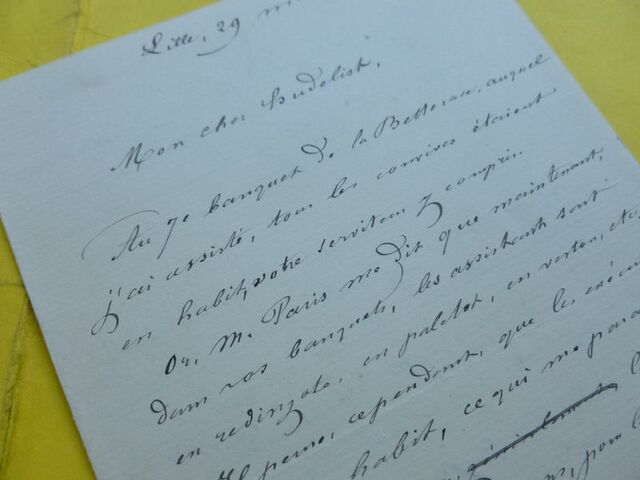 Lille, 29
Mon cher Hudelist,
Au 7e banquet de la Betterave, auquel
j'ai assisté, tous les convives étaient
en habit, votre serviteur y compris.
Or, M. Paris me dit que maintenant,
dans vos banquets, les assistants sont
en redingote, en paletot, en veston, etc.
Il pense, cependant, que les
habit, ce qui me
pour